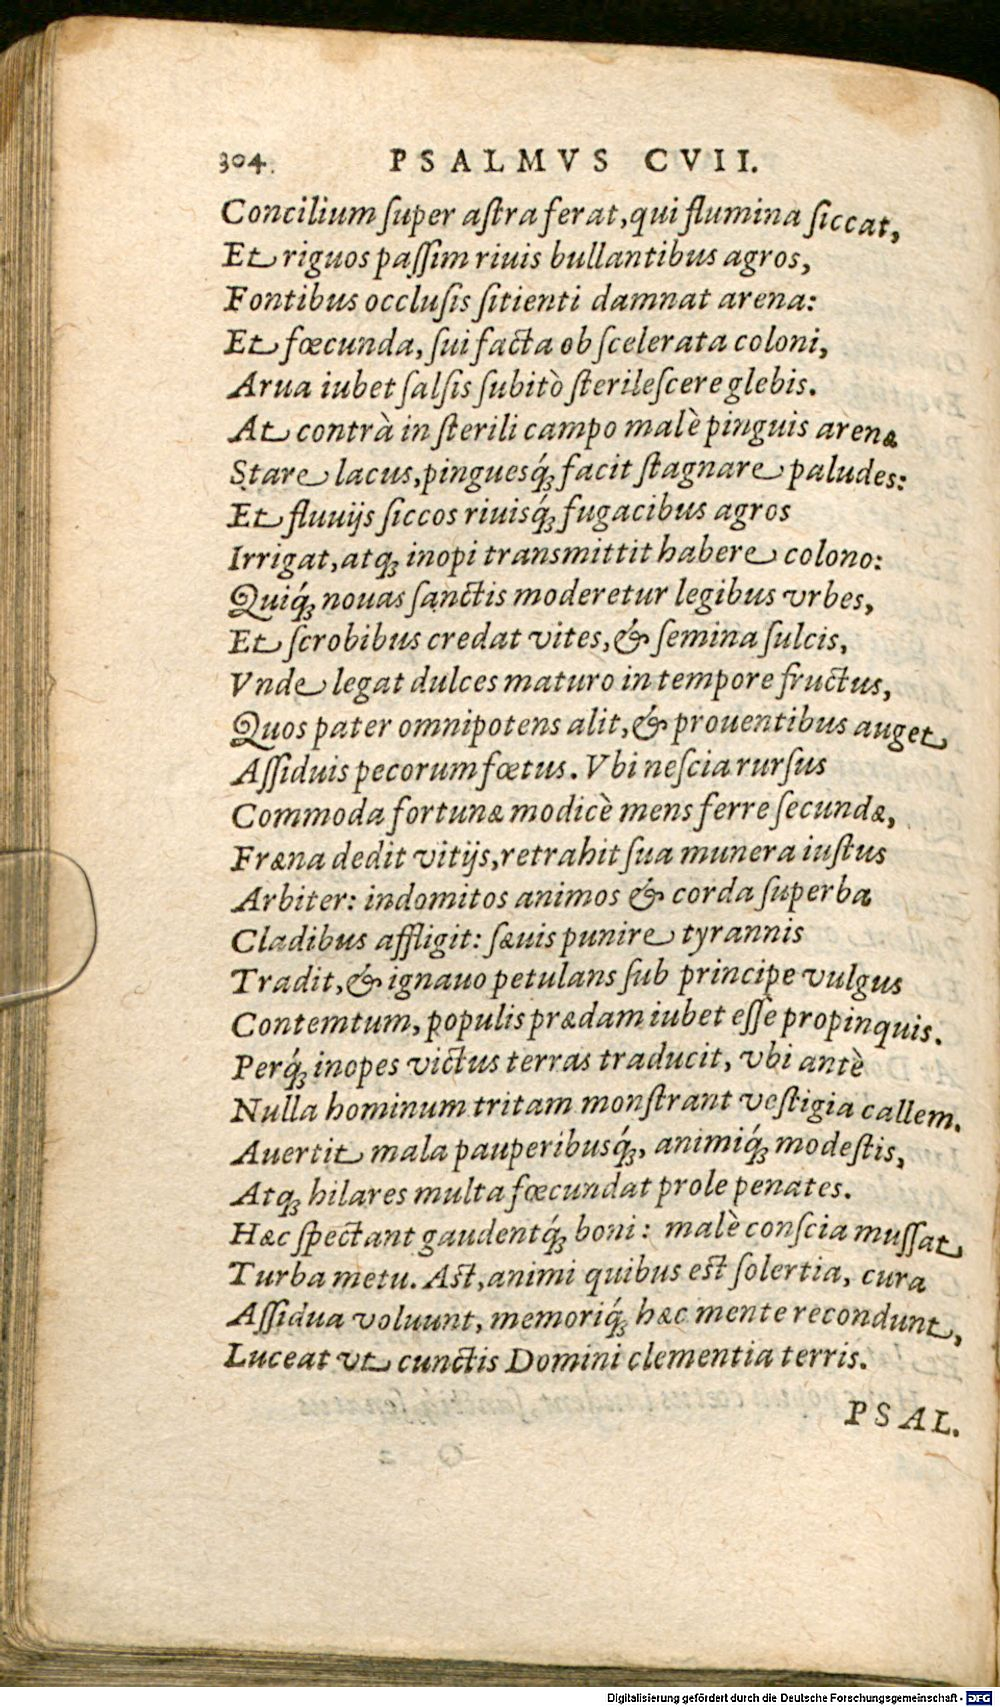 304. PSALMVS CVII.
Concilium ſuper aſtra ferat, qui flumina ſiccat,
Et riguos paſſim riuis bullantibus agros,
Fontibus occluſis ſitienti damnat arena:
Et fœcunda, ſui facta ob ſcelerata coloni,
Arua iubet ſalſis ſubitò ſterileſcere glebis.
At contrà in ſterili campo malè pinguis arenæ
Stare lacus, pinguesq́ꝫ facit ſtagnare paludes:
Et fluuijs ſiccos riuisq́ꝫ fugacibus agros
Irrigat, atqꝫ inopi transmittit habere colono:
Quiq́ꝫ nouas ſanctis moderetur legibus vrbes,
Et ſcrobibus credat vites, & ſemina ſulcis,
Vnde legat dulces maturo in tempore fructus,
Quos pater omnipotens alit, & prouentibus auget
Aſſiduis pecorum fœtus. Vbi neſcia rurſus
Commoda fortunæ modicè mens ferre ſecundæ,
Fræna dedit vitijs, retrahit ſua munera iuſtus
Arbiter: indomitos animos & corda ſuperba
Cladibus affligit: ſæuis punire tyrannis
Tradit, & ignauo petulans ſub principe vulgus
Contemtum, populis prædam iubet eſſe propinquis.
Perq́ꝫ inopes victus terras traducit, vbi antè
Nulla hominum tritam monſtrant veſtigia callem.
Auertit mala pauperibusq́ꝫ, animiq́ꝫ modeſtis,
Atqꝫ hilares multa fœcundat prole penates.
Hæc ſpectant gaudentq́ꝫ boni: malè conſcia muſſat
Turba metu. Aſt, animi quibus eſt ſolertia, cura
Aſſidua voluunt, memoriq́ꝫ hæc mente recondunt,
Luceat vt cunctis Domini clementia terris.
PSAL.
Digitalisierung gefördert durch die Deutsche Forschungsgemeinschaft - DFG